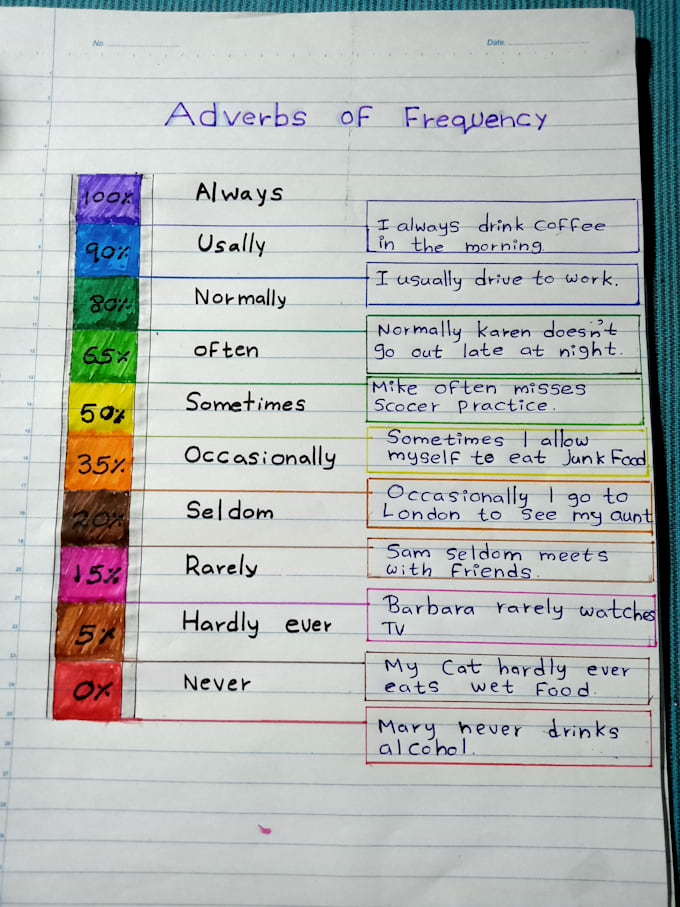 No.
Date.
Adverbs of Frequency
100% Always
I always drink coffee
in the morning
90% Usally
I usually drive to work.
80% Normally
Normally Karen doesn't
go out late at night.
65% often
Mike often misses
Scocer practice.
50% Sometimes
Sometimes I allow
myself to eat Junk Food
35% Occasionally
Occasionally I go to
London to see my aunt
20% Seldom
Sam seldom meets
with friends.
15% Rarely
Barbara rarely watches
TV
5% Hardly ever
My Cat hardly ever
eats wet Food.
0% Never
Mary never drinks
alcohol.